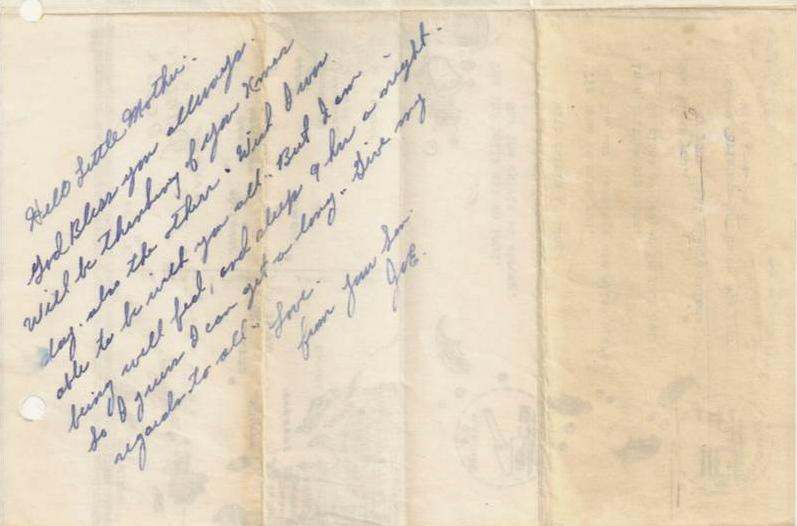 Hello Little Mother.
God Bless you allways.
Will be thinking of you Xmas
day. also the others. Wish I was
able to be with you all. But I am
being well fed, and sleep 9 hrs a night.
So I guess I can get a long. Give my
regards to all. Love.
from your Son.
Joe.